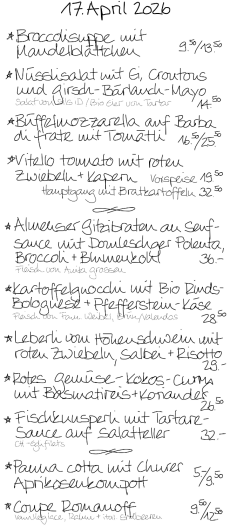 17. April 2026
* Broccolisuppe mit
Mandelblättchen 9.50/13.50
* Nüsslisalat mit Ei, Croutons
und Girsch-Bärlauch-Mayo
14.50
* Büffelmozzarella auf Barba
di frate mit Tomätli 16.50/25.50
* Vitello tonnato mit roten
Zwiebeln + Kapern Vorspeise 19.50
Hauptgang mit Bratkartoffeln 32.50
* Almenser Gitzibraten an Senf-
sauce mit Domleschger Polenta,
Broccoli + Blumenkohl 36.-
Fleisch von
* Kartoffelgnocchi mit Bio Rinds-
Bolognese + Pfefferstein-Käse
Fleisch von Fam. 28.50
* Leberli vom Höhenschwein mit
roten Zwiebeln, Salbei + Risotto
29.-
* Rotes Gemüse-Kokos-Curry
mit Basmatireis + Koriander
26.50
* Fischknusperli mit Tartare-
Sauce auf Salatteller 32.-
CH-Eglifilets
* Panna cotta mit Churer
Aprikosenkompott 5/9.50
* Coupe Romanoff
Vanilleglace, Rahm + Erdbeeren 9.50/12.50